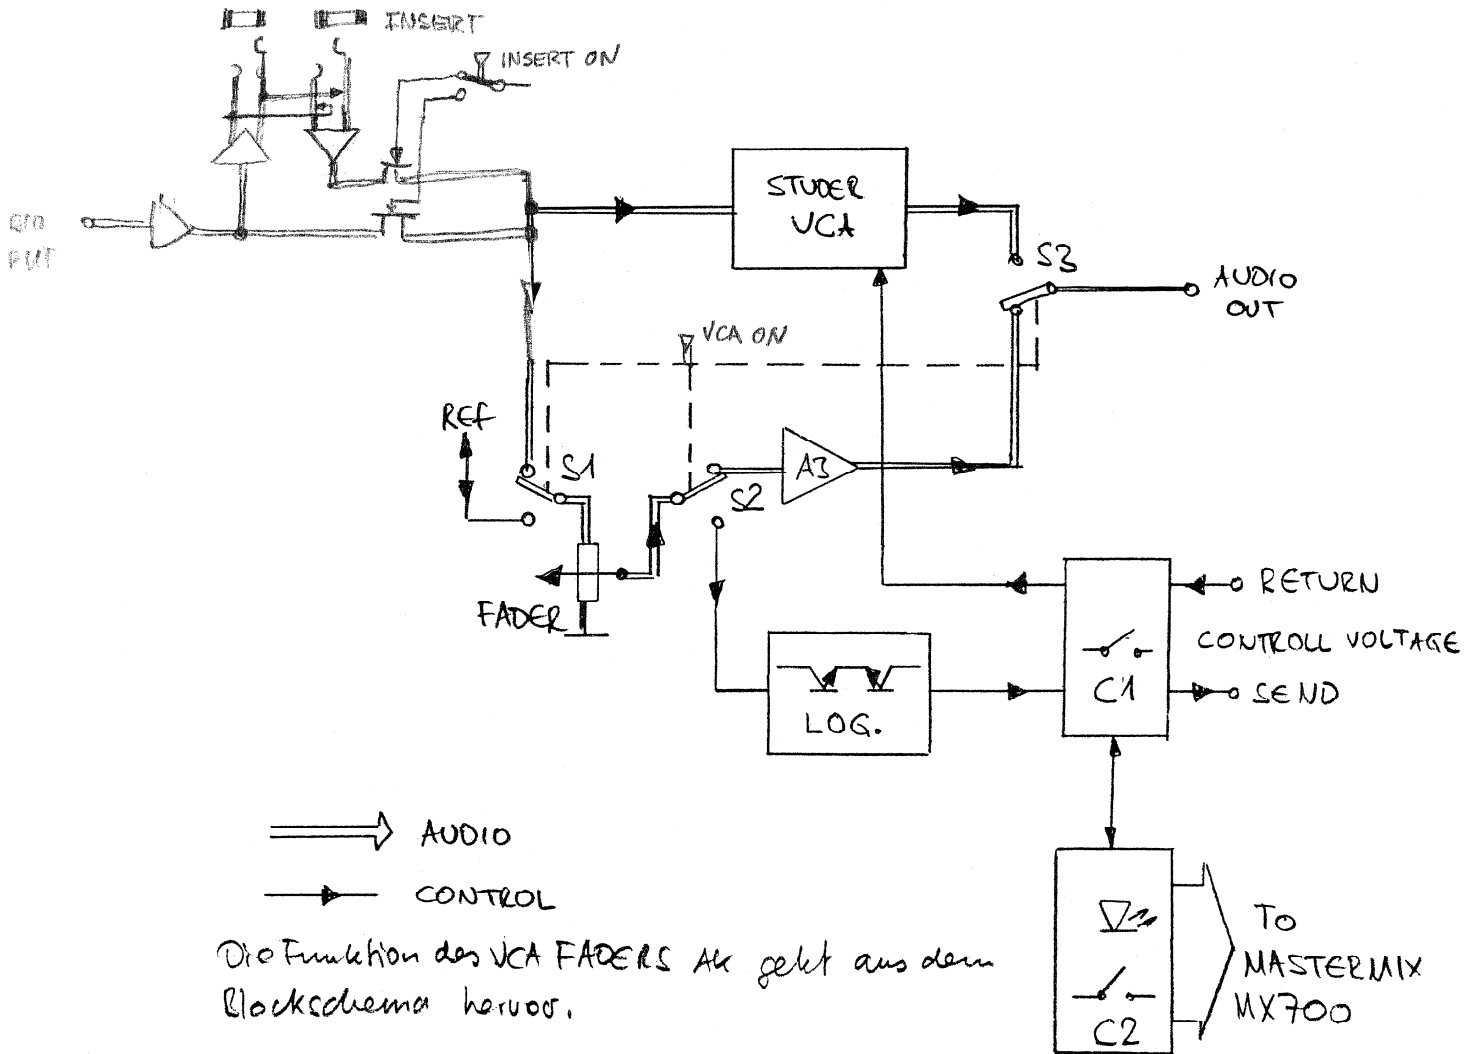 INSERT
INSERT ON
STUDER
VCA
S3
AUDIO
OUT
VCA ON
REF
S1
S2
A3
FADER
RETURN
CONTROLL VOLTAGE
C1
SEND
LOG.
AUDIO
CONTROL
Die Funktion des VCA FADERS AK geht aus dem
Blockschema hervor.
C2
TO
MASTERMIX
MX700